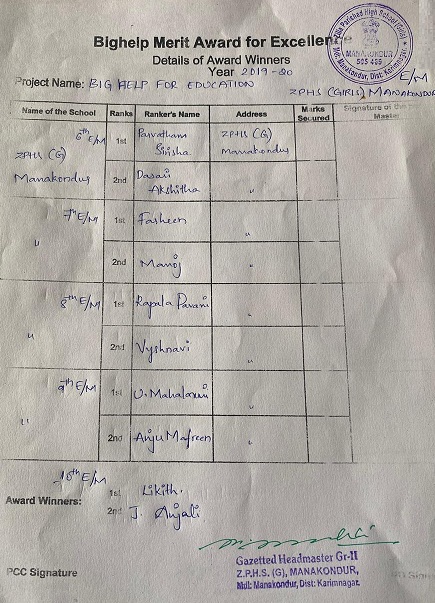 Bighelp Merit Award for Excellence
Details of Award Winners
Year 2019-20
Project Name: BIG HELP FOR EDUCATION
E/M
ZPHS (GIRLS) MANAKONDUR
MANAKONDUR
505 469
Mdl: Manakondur, Dist: Karimnagar
Name of the School Ranks Ranker's Name Address Marks Secured Signature of the Master
6th E/M 1st Parvatham Sirisha ZPHS (G) Manakondur
ZPHS (G)
Manakondur 2nd Dasari Akshitha "
7th E/M 1st Farheen "
" 2nd Manoj "
8th E/M 1st Rapala Pavani "
" 2nd Vyshnavi "
9th E/M 1st U. Mahalaxmi "
" 2nd Anju Mafreen "
10th E/M
Award Winners: 1st Likith.
2nd J. Anjali
Gazetted Headmaster Gr-II
Z.P.H.S. (G), MANAKONDUR,
Mdl: Manakondur, Dist: Karimnagar.
PCC Signature